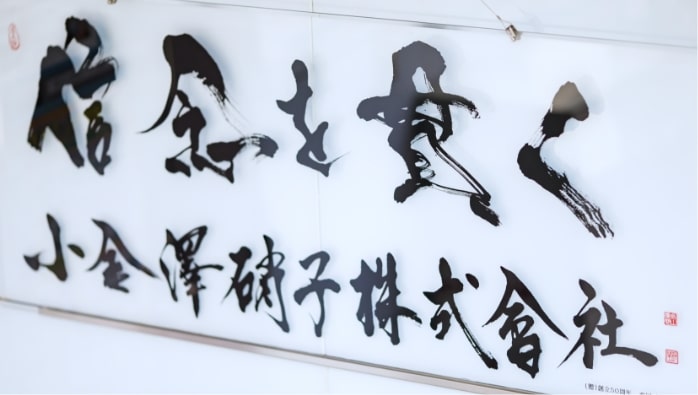 信念を貫く
小金澤硝子株式會社
(贈)創立50周年